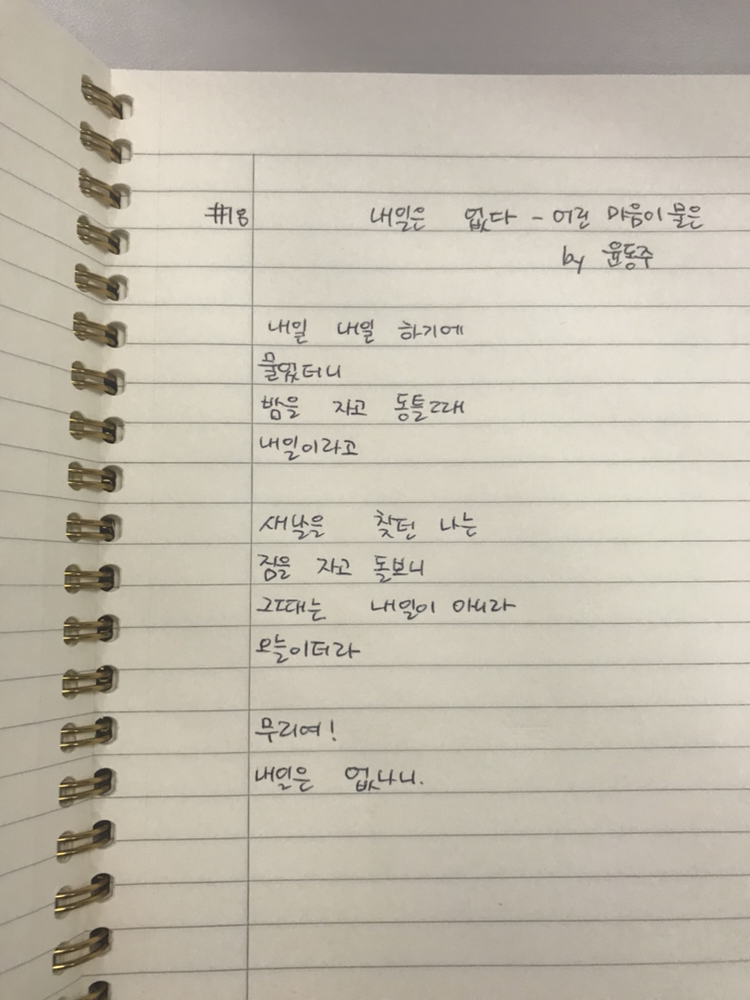 #18 내일은 없다 - 어린 마음이 물은
by 윤동주
내일 내일 하기에
물었더니
밤을 자고 동틀때
내일이라고
새날을 찾던 나는
잠을 자고 돌보니
그때는 내일이 아니라
오늘이더라
무리여!
내일은 없나니.